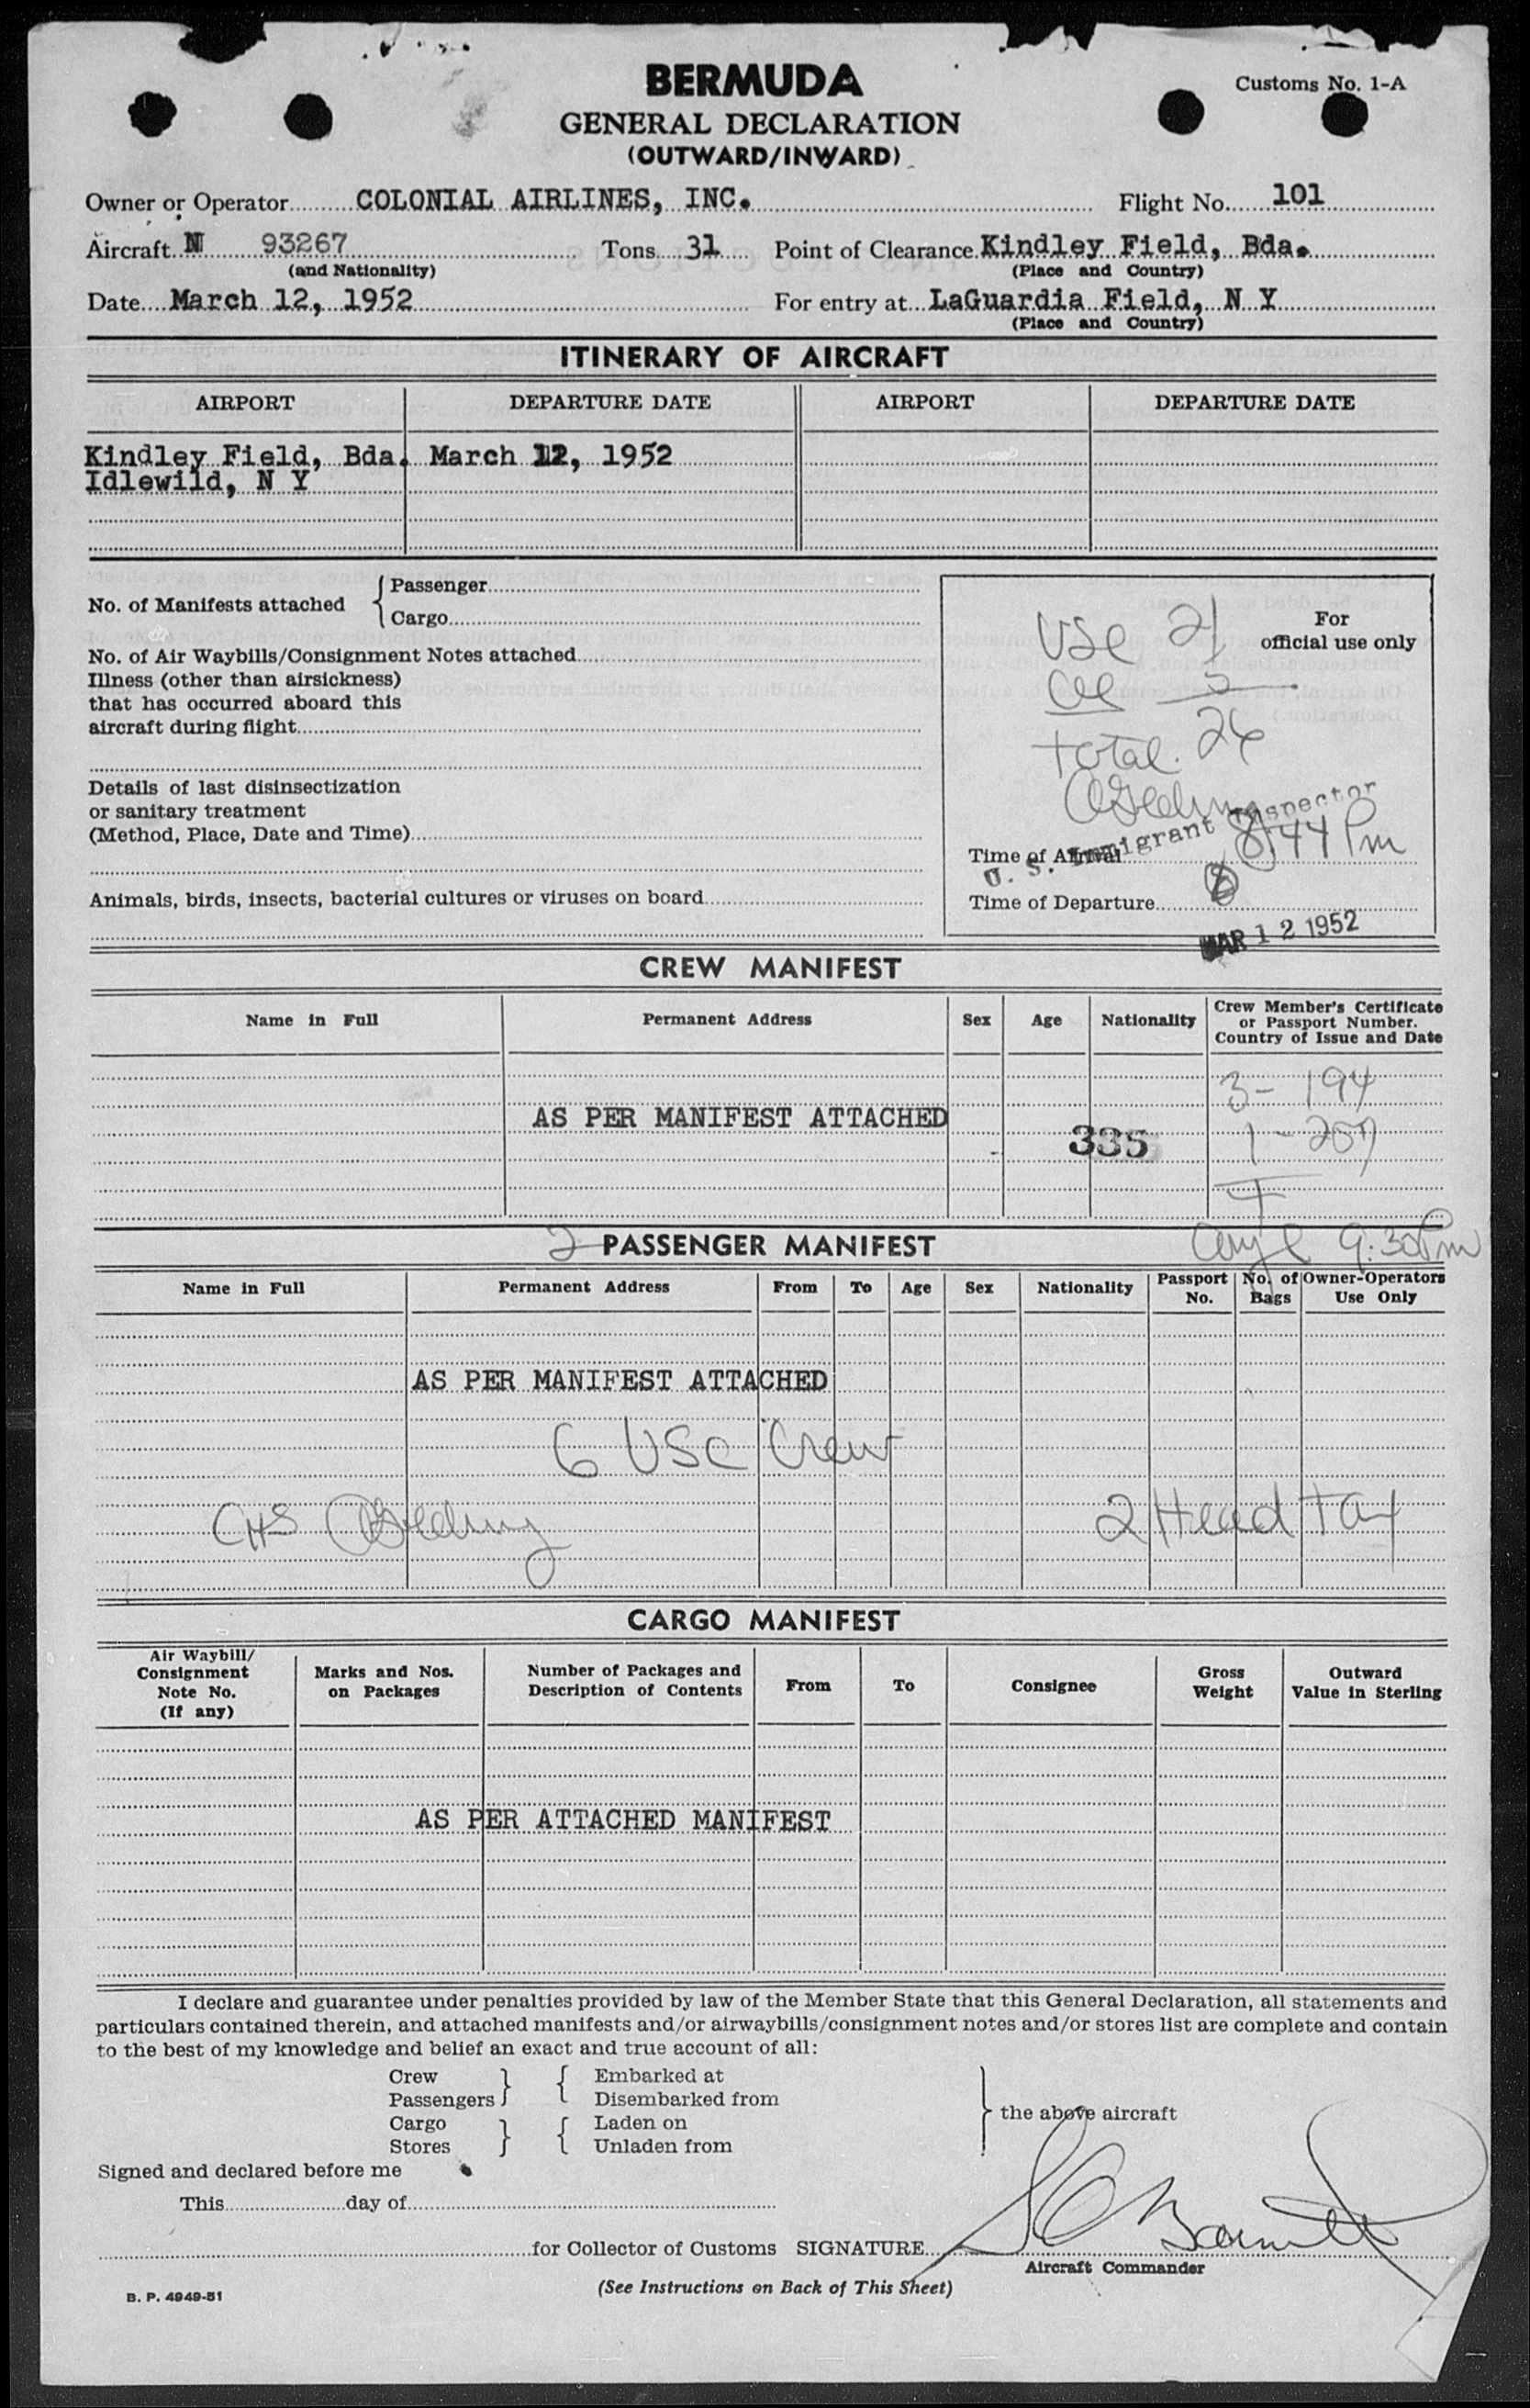 BERMUDA
Customs No. 1-A
GENERAL DECLARATION
(OUTWARD/INWARD)
Owner or Operator COLONIAL AIRLINES, INC. Flight No. 101
Aircraft N 93267 Tons 31 Point of Clearance Kindley Field, Bda.
(and Nationality) (Place and Country)
Date March 12, 1952 For entry at LaGuardia Field, N Y
(Place and Country)
ITINERARY OF AIRCRAFT
AIRPORT DEPARTURE DATE AIRPORT DEPARTURE DATE
Kindley Field, Bda. March 12, 1952
Idlewild, N Y
No. of Manifests attached { Passenger
Cargo
No. of Air Waybills/Consignment Notes attached
Illness (other than airsickness)
that has occurred aboard this
aircraft during flight
Details of last disinsectization
or sanitary treatment
(Method, Place, Date and Time)
Animals, birds, insects, bacterial cultures or viruses on board
For
official use only
USC 21
5
Total. 26
U. S. Immigrant Inspector
Time of Arrival 8:44 Pm
Time of Departure
MAR 12 1952
CREW MANIFEST
Name in Full Permanent Address Sex Age Nationality Crew Member's Certificate
or Passport Number.
Country of Issue and Date
3 - 194
AS PER MANIFEST ATTACHED
335
1 - 207
2 PASSENGER MANIFEST
9:30 Pm
Name in Full Permanent Address From To Age Sex Nationality Passport No. No. of Bags Owner-Operators Use Only
AS PER MANIFEST ATTACHED
6 USC Crew
CHS
2 Head Tax
CARGO MANIFEST
Air Waybill/ Consignment Note No. (If any) Marks and Nos. on Packages Number of Packages and Description of Contents From To Consignee Gross Weight Outward Value in Sterling
AS PER ATTACHED MANIFEST
I declare and guarantee under penalties provided by law of the Member State that this General Declaration, all statements and
particulars contained therein, and attached manifests and/or airwaybills/consignment notes and/or stores list are complete and contain
to the best of my knowledge and belief an exact and true account of all:
Crew Embarked at
Passengers Disembarked from
Cargo Laden on
Stores Unladen from
the above aircraft
Signed and declared before me
This day of
for Collector of Customs SIGNATURE
Aircraft Commander
(See Instructions on Back of This Sheet)
B. P. 4949-51